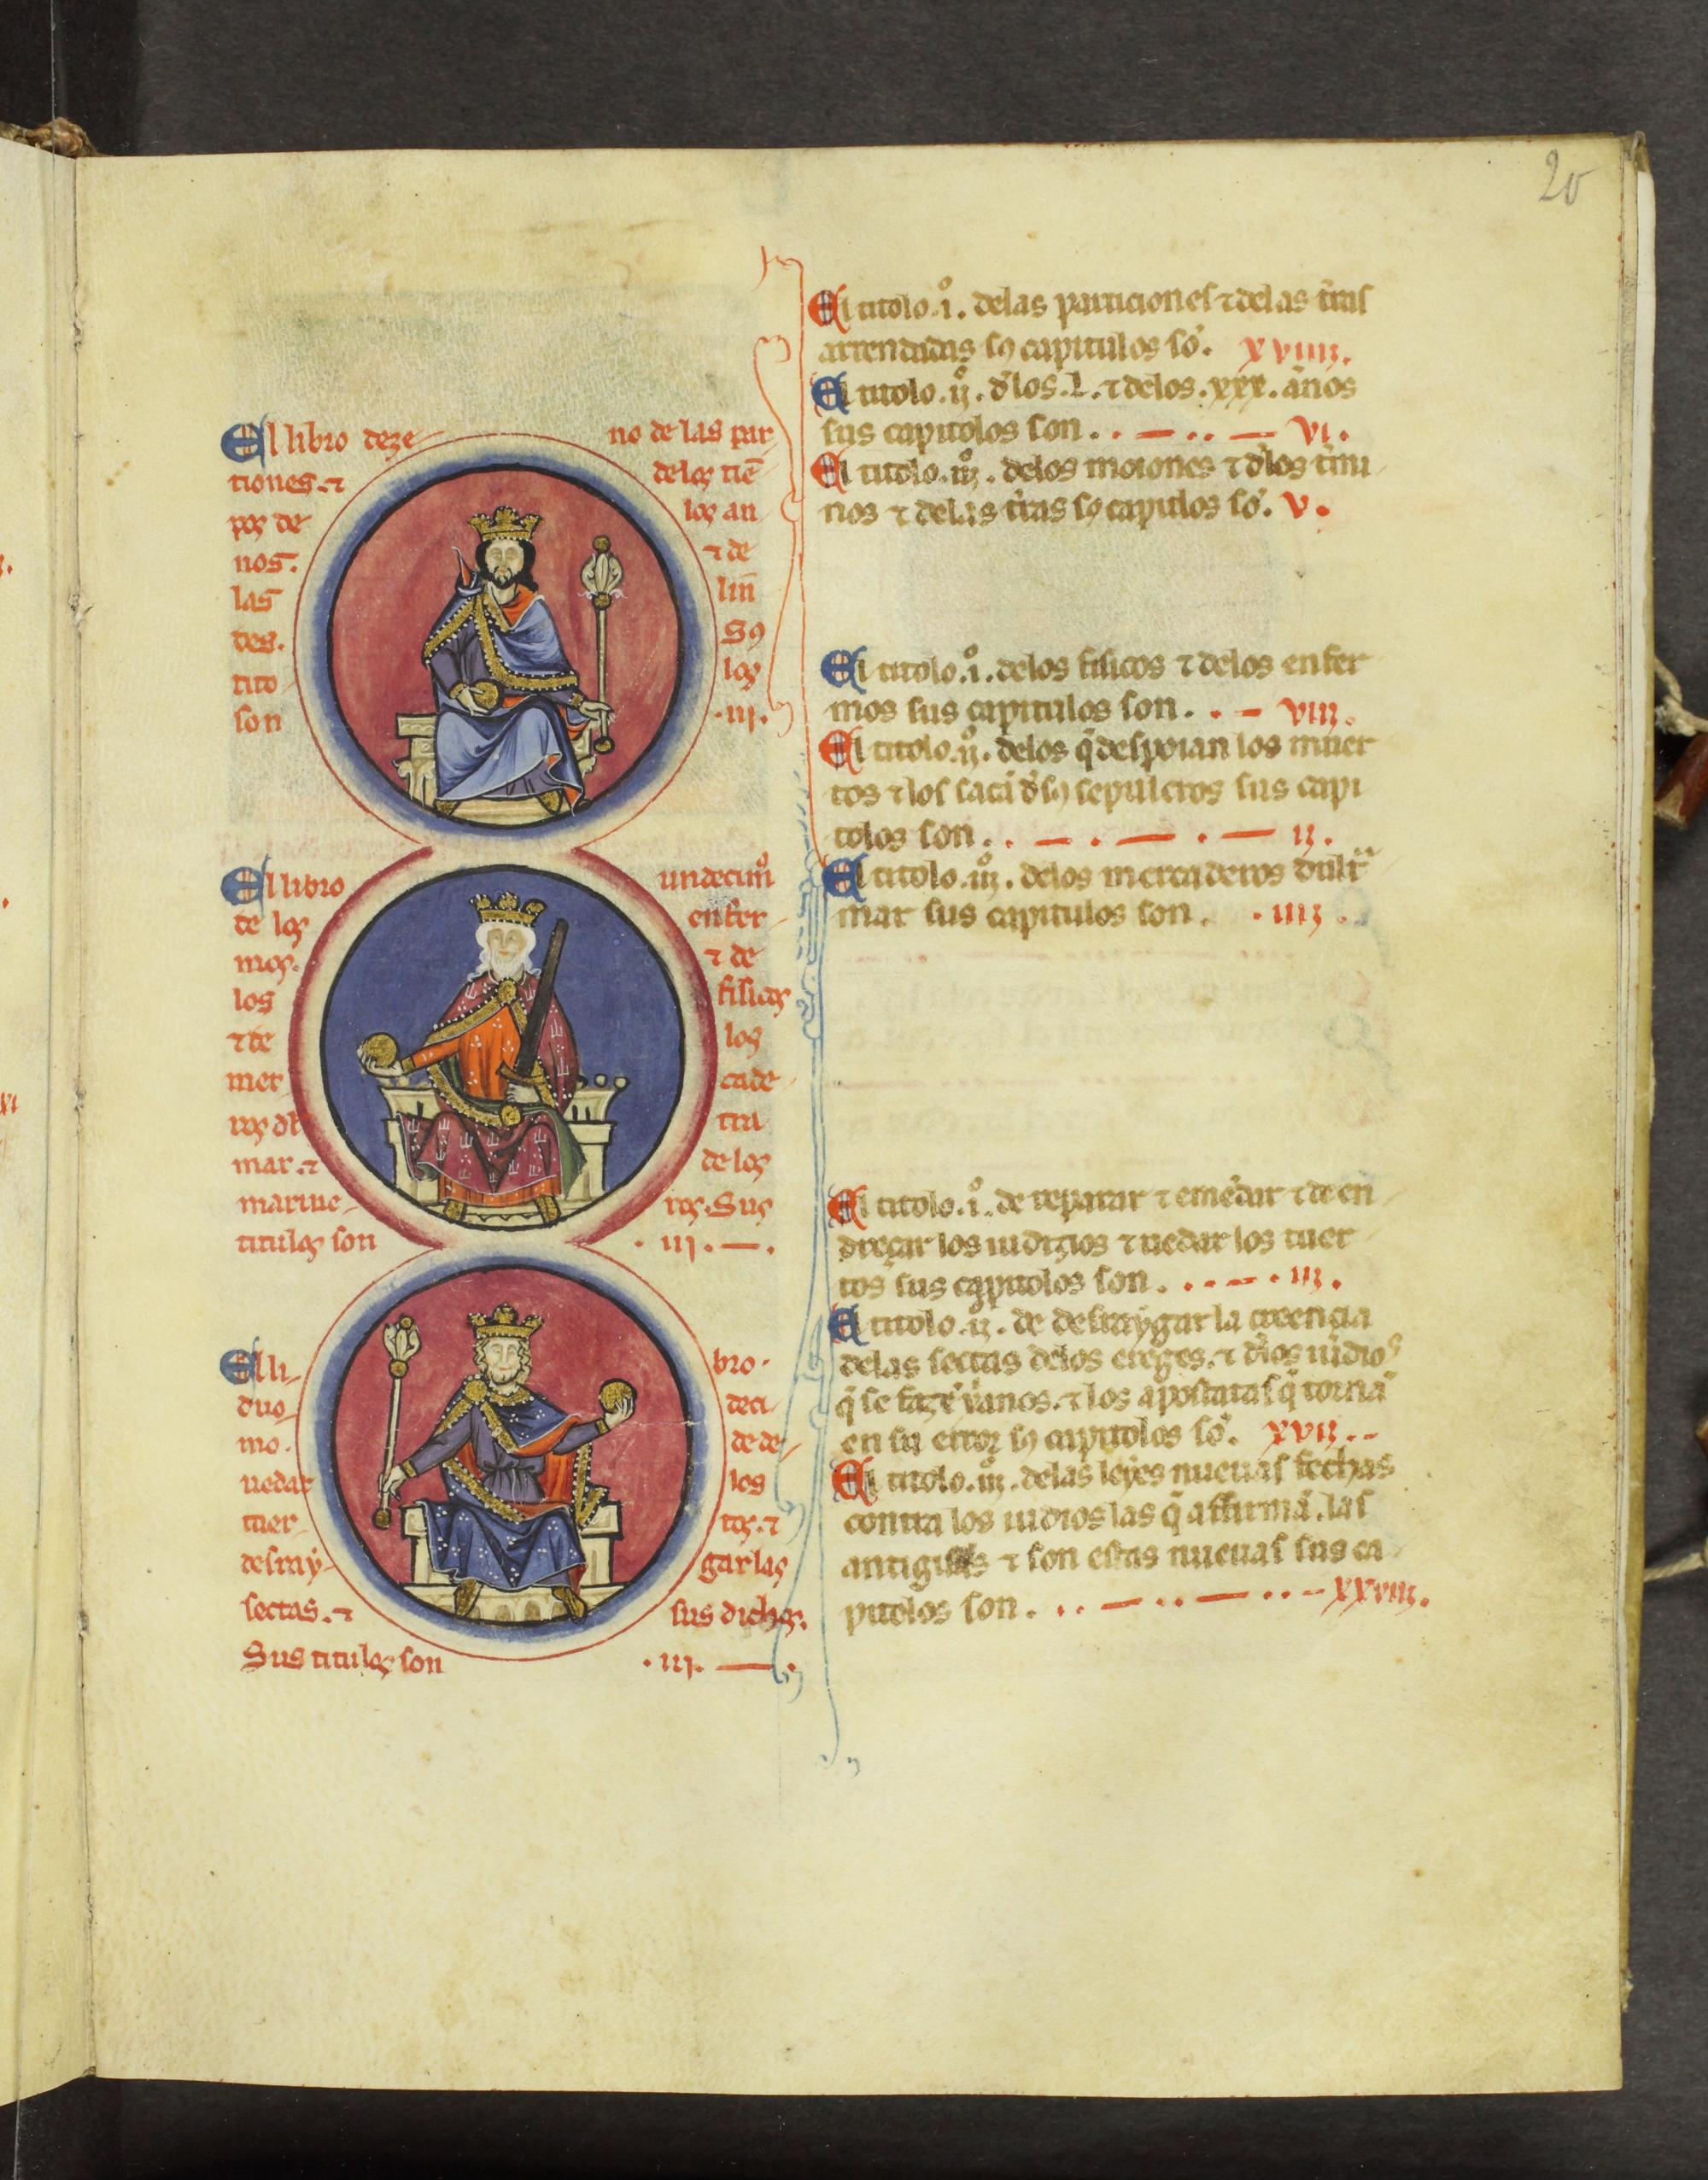 20
El libro deze no de las par
tiones. ⁊ delos tiē
pos de los an
nos. ⁊ de
las lin̄
des. Sꝯ
tito los
son .iij.
El libro undecimͦ
de los enfer
mos. ⁊ de
los fisicos
⁊ de los
mer cade
ros dl̓ tra
mar. ⁊ de los
marine ros. Sus
titulos son . iij. — .
El li bro.
duo deci
mo. de de
uedar los
tuer tos. ⁊
desray gar las
sectas. ⁊ sus dichos.
Sus titulos son .iij. — .
El titolo .iͦ. delas particiones ⁊ delas t̓ras
arrendadas sꝯ capitulos sō. xviiij.
El titolo .ijͦ. d̓los .L. ⁊ delos .xxx. ānos
sus capitolos son . . — . . — vi.
El titolo .iijͦ. delos moiones ⁊ d̓los t̓mi
nos ⁊ delas t̓ras sꝯ capitulos sō. v.
El titolo .iͦ. delos fisicos ⁊ delos enfer
mos sus capitulos son . . — viij.
El titolo .ijͦ. delos q̄ despoian los muer
tos ⁊ los sacā d̓ sꝯ sepulcros sus capi
tolos son . . — . — . — ij.
El titolo .iijͦ. delos mercaderos dult̓
mar sus capitulos son . . iiij .
El titolo .iͦ. de reparar ⁊ emēdar ⁊ de en
dreçar los iudizios ⁊ uedar los tuer
tos sus capitolos son . . . — . iij.
El titolo .ijͦ. de desraygar la creencia
delas sectas delos ereges. ⁊ d̓los iudios
q̄ se fazē x̓anos. ⁊ los apostatas q̄ tornā
en su error sꝯ capitolos sō. xvij . -
El titolo .iijͦ. delas leyes nueuas fechas
contra los iudios las q̄ affirmā. las
antiguas ⁊ son estas nueuas sus ca
pitolos son . . . — . . — . . - xxviij.